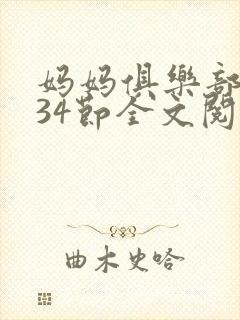 妈妈俱乐部
34节全文阅
曲木史哈